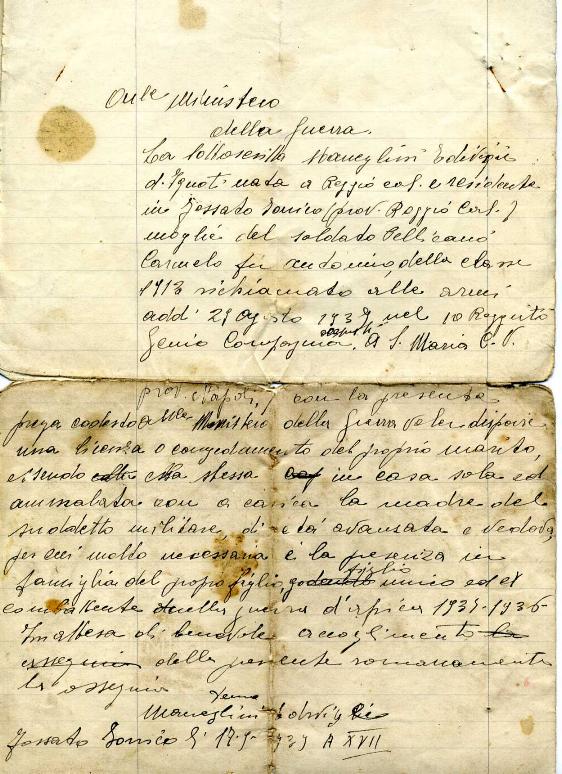 On.le Ministero
della Guerra.
La sottoscritta Maneglini Edvige
d'Ignoti nata a Reggio Cal. e residente
in Fossato Ionico (prov. Reggio Cal.)
moglie del soldato Pellicanò
Carmelo fu Antonino, della classe
1913 richiamato alle armi
addì 29 Agosto 1939 nel 10 Reggimto
Genio Compagnia, A S. Maria C. V.
prov. Napoli, con la presente
prega codesto On.le Ministero della Guerra voler disporre
una licenza o congedamento del proprio marito,
essendo essa stessa in casa sola ed
ammalata con a carica la madre del
suddetto militare, di età avanzata e vedova,
per cui molto necessaria è la presenza in
famiglia del propio figlio, figlio unico ed ex
combattente nella guerra d'Africa 1935-1936
In attesa di benevole accoglimento
della presente romanamente
la ossequia
Maneglini Edvige
Fossato Ionico lì 17-9-1939 A XVII